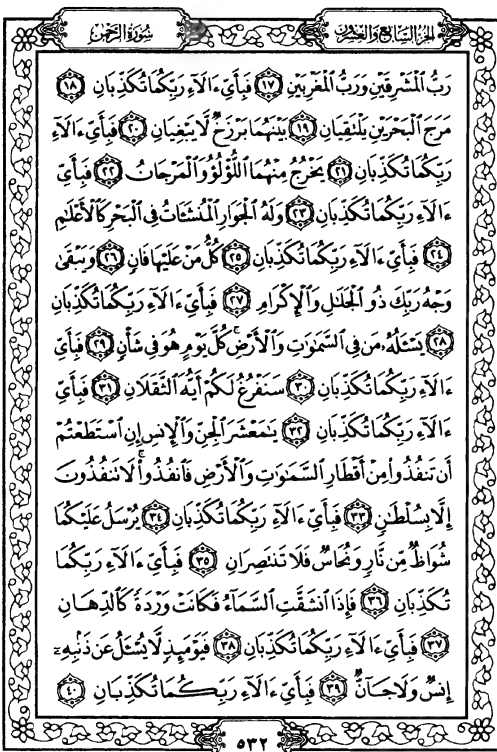 سُورَةُ الرَّحْمٰن الجُزْءُ السَّابِعُ وَالعِشْرُونَ
رَبُّ ٱلْمَشْرِقَيْنِ وَرَبُّ ٱلْمَغْرِبَيْنِ ١٧ فَبِأَيِّ ءَالَآءِ رَبِّكُمَا تُكَذِّبَانِ ١٨
مَرَجَ ٱلْبَحْرَيْنِ يَلْتَقِيَانِ ١٩ بَيْنَهُمَا بَرْزَخٌ لَّا يَبْغِيَانِ ٢٠ فَبِأَيِّ ءَالَآءِ
رَبِّكُمَا تُكَذِّبَانِ ٢١ يَخْرُجُ مِنْهُمَا ٱللُّؤْلُؤُ وَٱلْمَرْجَانُ ٢٢ فَبِأَيِّ
ءَالَآءِ رَبِّكُمَا تُكَذِّبَانِ ٢٣ وَلَهُ ٱلْجَوَارِ ٱلْمُنشَـَٔاتُ فِى ٱلْبَحْرِ كَٱلْأَعْلَٰمِ
٢٤ فَبِأَيِّ ءَالَآءِ رَبِّكُمَا تُكَذِّبَانِ ٢٥ كُلُّ مَنْ عَلَيْهَا فَانٍ ٢٦ وَيَبْقَىٰ
وَجْهُ رَبِّكَ ذُو ٱلْجَلَٰلِ وَٱلْإِكْرَامِ ٢٧ فَبِأَيِّ ءَالَآءِ رَبِّكُمَا تُكَذِّبَانِ
٢٨ يَسْـَٔلُهُۥ مَن فِى ٱلسَّمَٰوَٰتِ وَٱلْأَرْضِ ۚ كُلَّ يَوْمٍ هُوَ فِى شَأْنٍ ٢٩ فَبِأَيِّ
ءَالَآءِ رَبِّكُمَا تُكَذِّبَانِ ٣٠ سَنَفْرُغُ لَكُمْ أَيُّهَ ٱلثَّقَلَانِ ٣١ فَبِأَيِّ
ءَالَآءِ رَبِّكُمَا تُكَذِّبَانِ ٣٢ يَٰمَعْشَرَ ٱلْجِنِّ وَٱلْإِنسِ إِنِ ٱسْتَطَعْتُمْ
أَن تَنفُذُوا۟ مِنْ أَقْطَارِ ٱلسَّمَٰوَٰتِ وَٱلْأَرْضِ فَٱنفُذُوا۟ ۚ لَا تَنفُذُونَ
إِلَّا بِسُلْطَٰنٍ ٣٣ فَبِأَيِّ ءَالَآءِ رَبِّكُمَا تُكَذِّبَانِ ٣٤ يُرْسَلُ عَلَيْكُمَا
شُوَاظٌ مِّن نَّارٍ وَنُحَاسٌ فَلَا تَنتَصِرَانِ ٣٥ فَبِأَيِّ ءَالَآءِ رَبِّكُمَا
تُكَذِّبَانِ ٣٦ فَإِذَا ٱنشَقَّتِ ٱلسَّمَآءُ فَكَانَتْ وَرْدَةً كَٱلدِّهَانِ
٣٧ فَبِأَيِّ ءَالَآءِ رَبِّكُمَا تُكَذِّبَانِ ٣٨ فَيَوْمَئِذٍ لَّا يُسْـَٔلُ عَن ذَنۢبِهِۦٓ
إِنسٌ وَلَا جَآنٌّ ٣٩ فَبِأَيِّ ءَالَآءِ رَبِّكُمَا تُكَذِّبَانِ ٤٠
٥٣٢